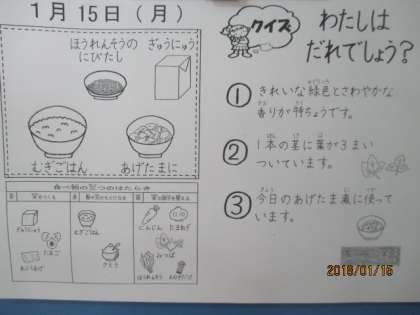 1月 15日(月)
ほうれんそうの
にびたし
ぎゅうにゅう
むぎごはん
あげたまに
食べ物の三つのはたらき
ぎゅうにゅう
たまご
あぶらあげ
むぎごはん
さとう
にんじん
たまねぎ
みつば
ほうれんそう
クイズ
わたしは
だれでしょう?
① きれいな緑色とさわやかな
香りが特ちょうです。
② 1本の茎に葉が3まい
ついています。
③ 今日のあげたま煮に使って
います。
2018/01/15